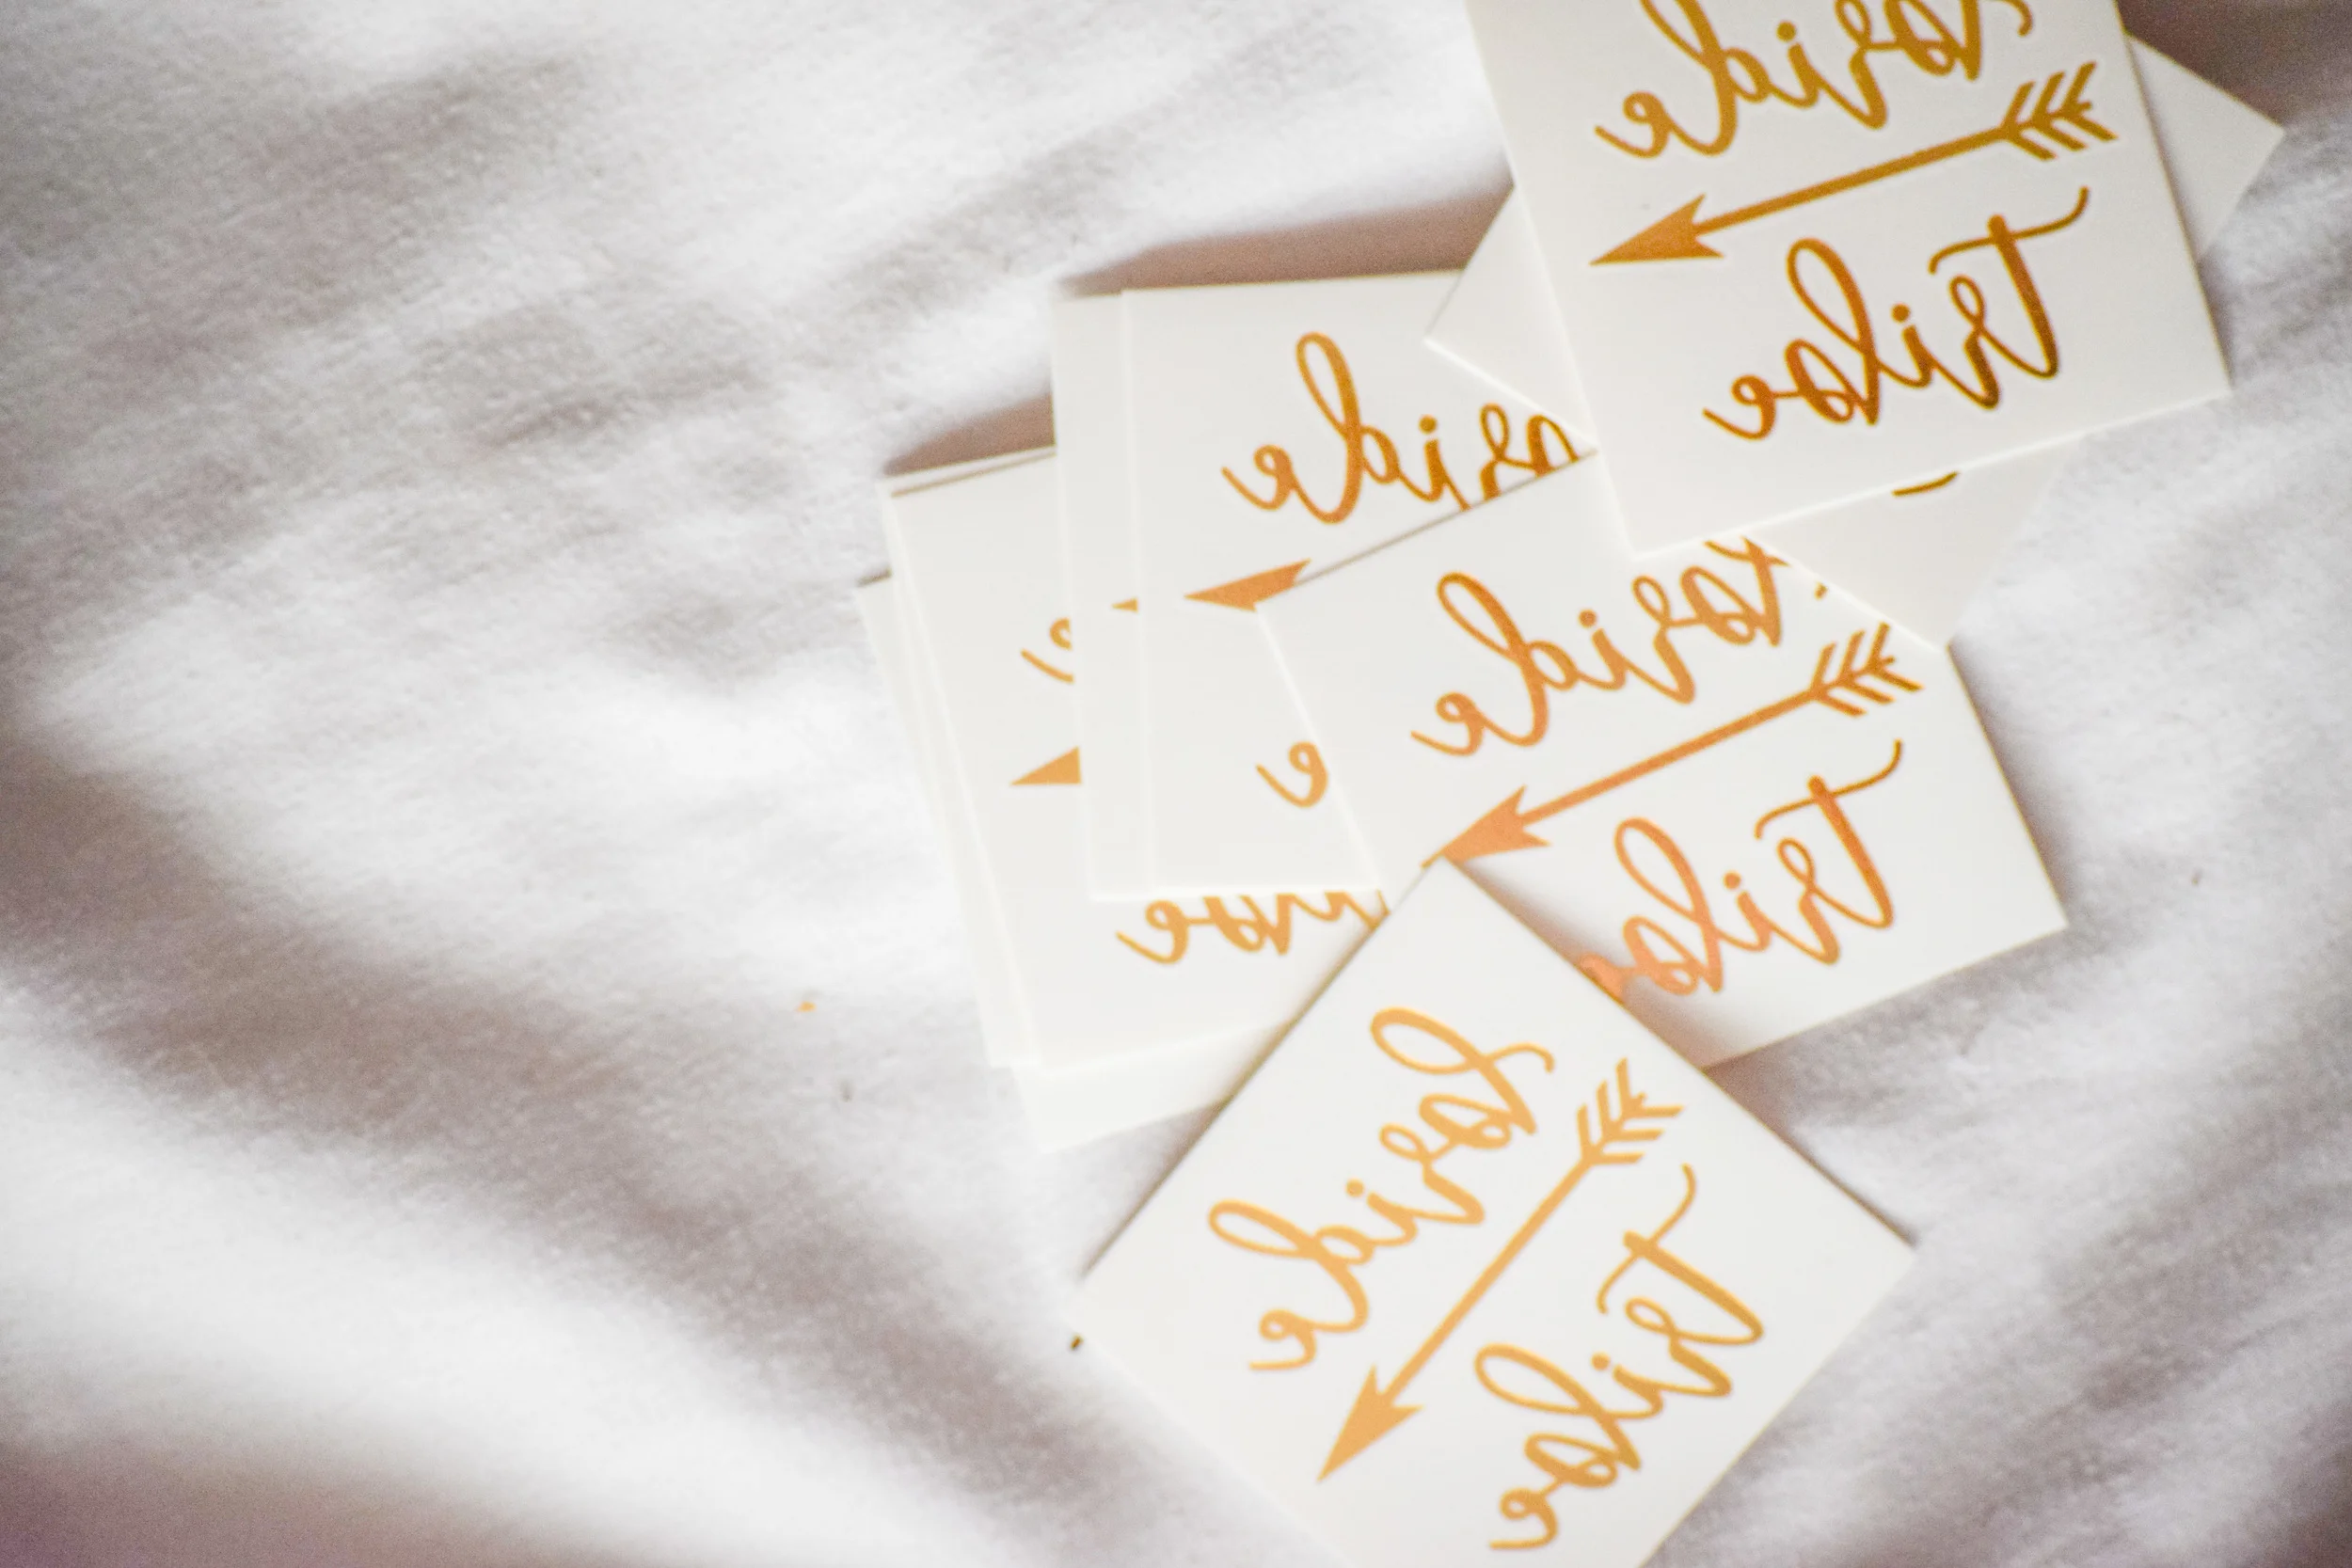 bride
tribe
bride
bride
tribe
bride
tribe